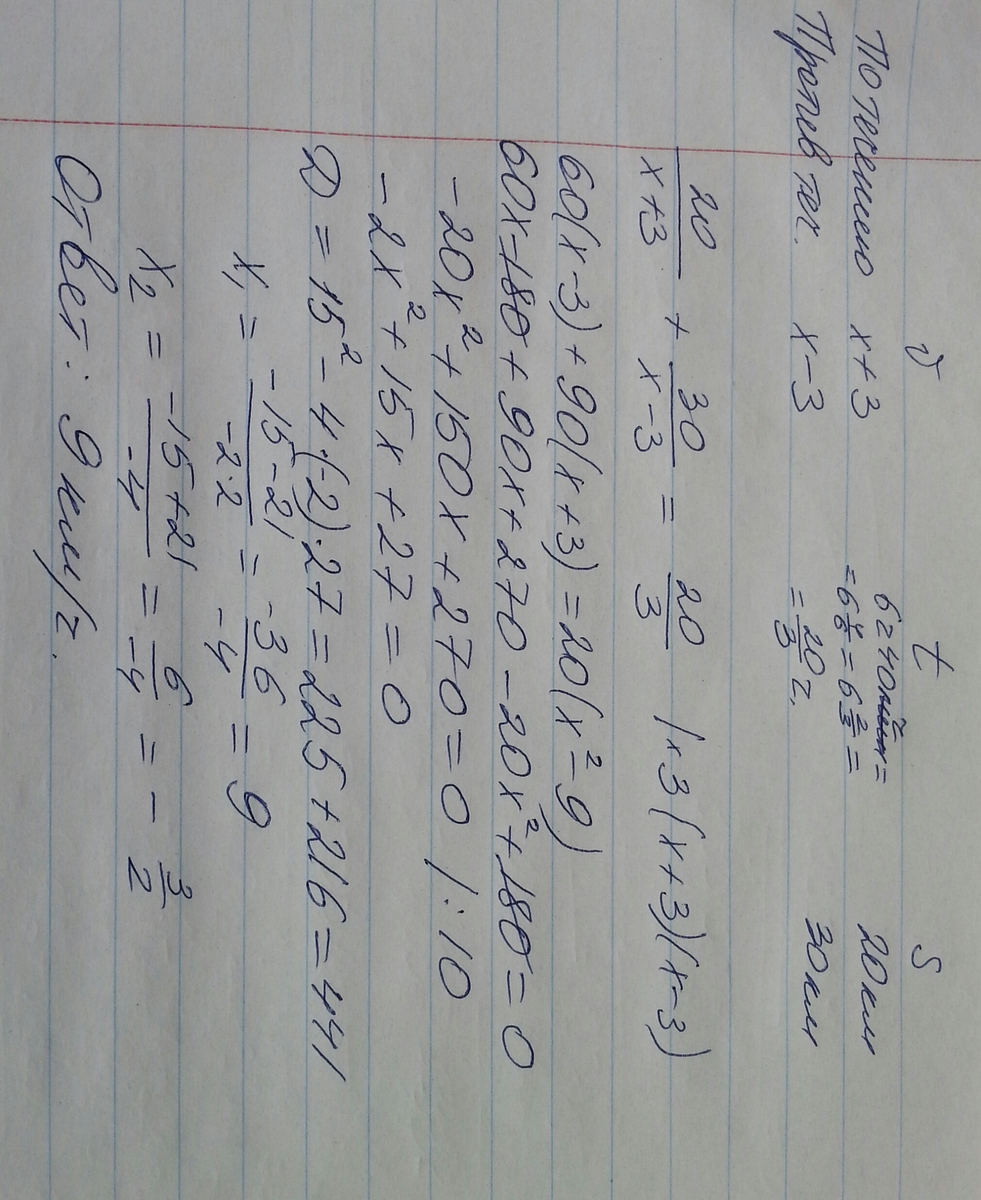 v t S
По течению x+3 6 ч 40 мин = 20 км
= 6 4/6 = 6 2/3 =
Против теч. x-3 = 20/3 ч. 30 км
20/(x+3) + 30/(x-3) = 20/3 | x3(x+3)(x-3)
60(x-3)+90(x+3)=20(x²-9)
60x-180+90x+270-20x²+180=0
-20x²+150x+270=0 /:10
-2x²+15x+27=0
D=15²-4·(-2)·27=225+216=441
x₁ = (-15-21)/(-2·2) = -36/-4 = 9
x₂ = (-15+21)/-4 = 6/-4 = -3/2
Ответ: 9 км/ч.